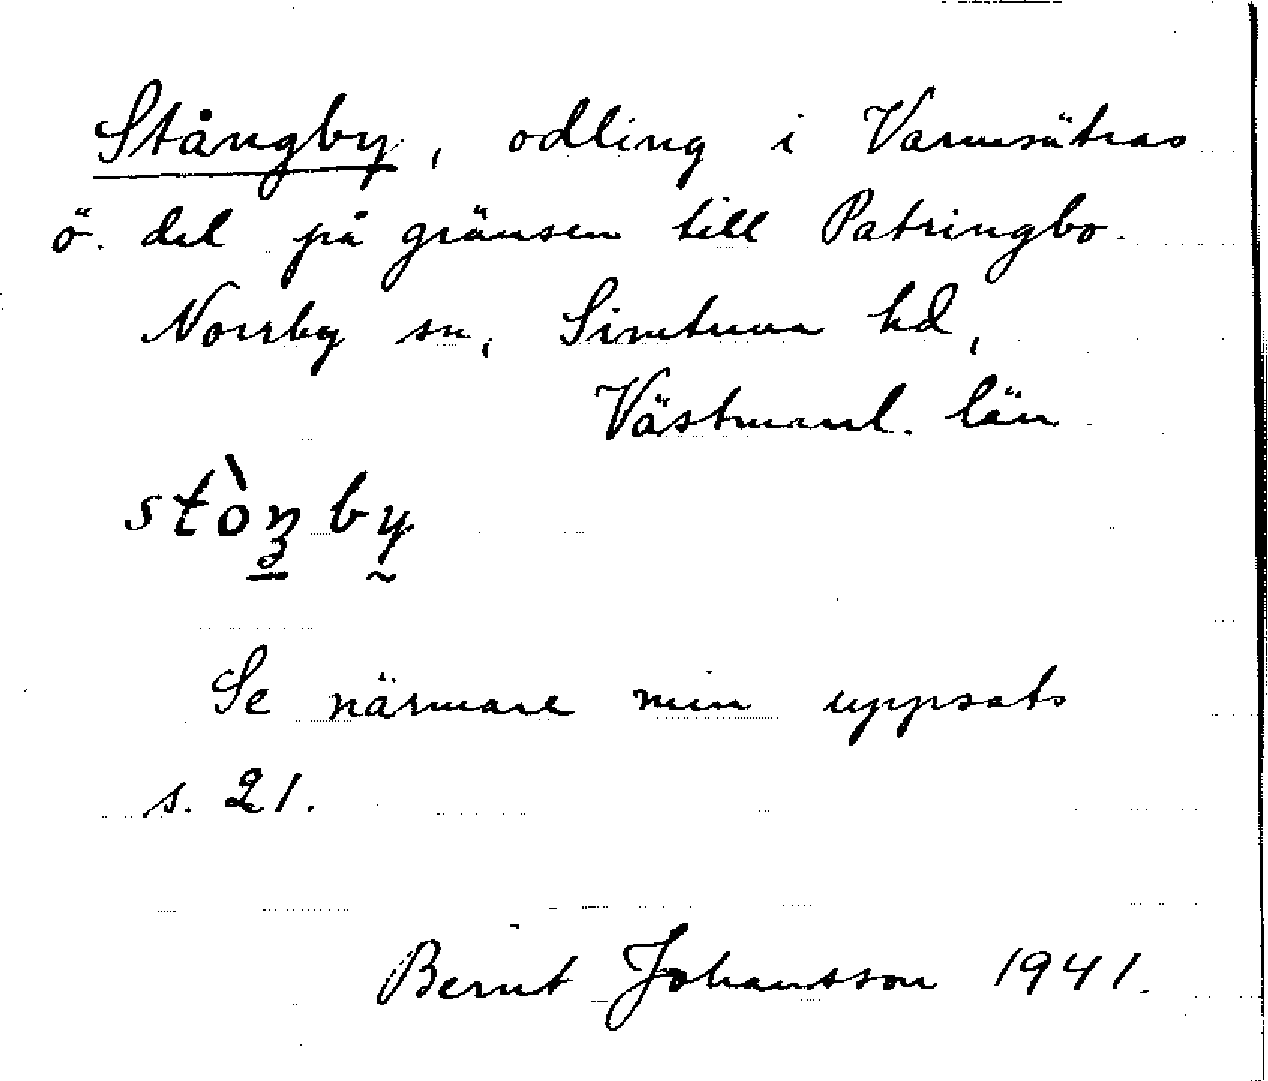 Stångby, odling i Varmsätras
ö. del på gränsen till Patringbo.
Norrby sn, Simtuna hd,
Västmanl. län
stòŋby
Se närmare min uppsats
s. 21.
Bernt Johansson 1941.